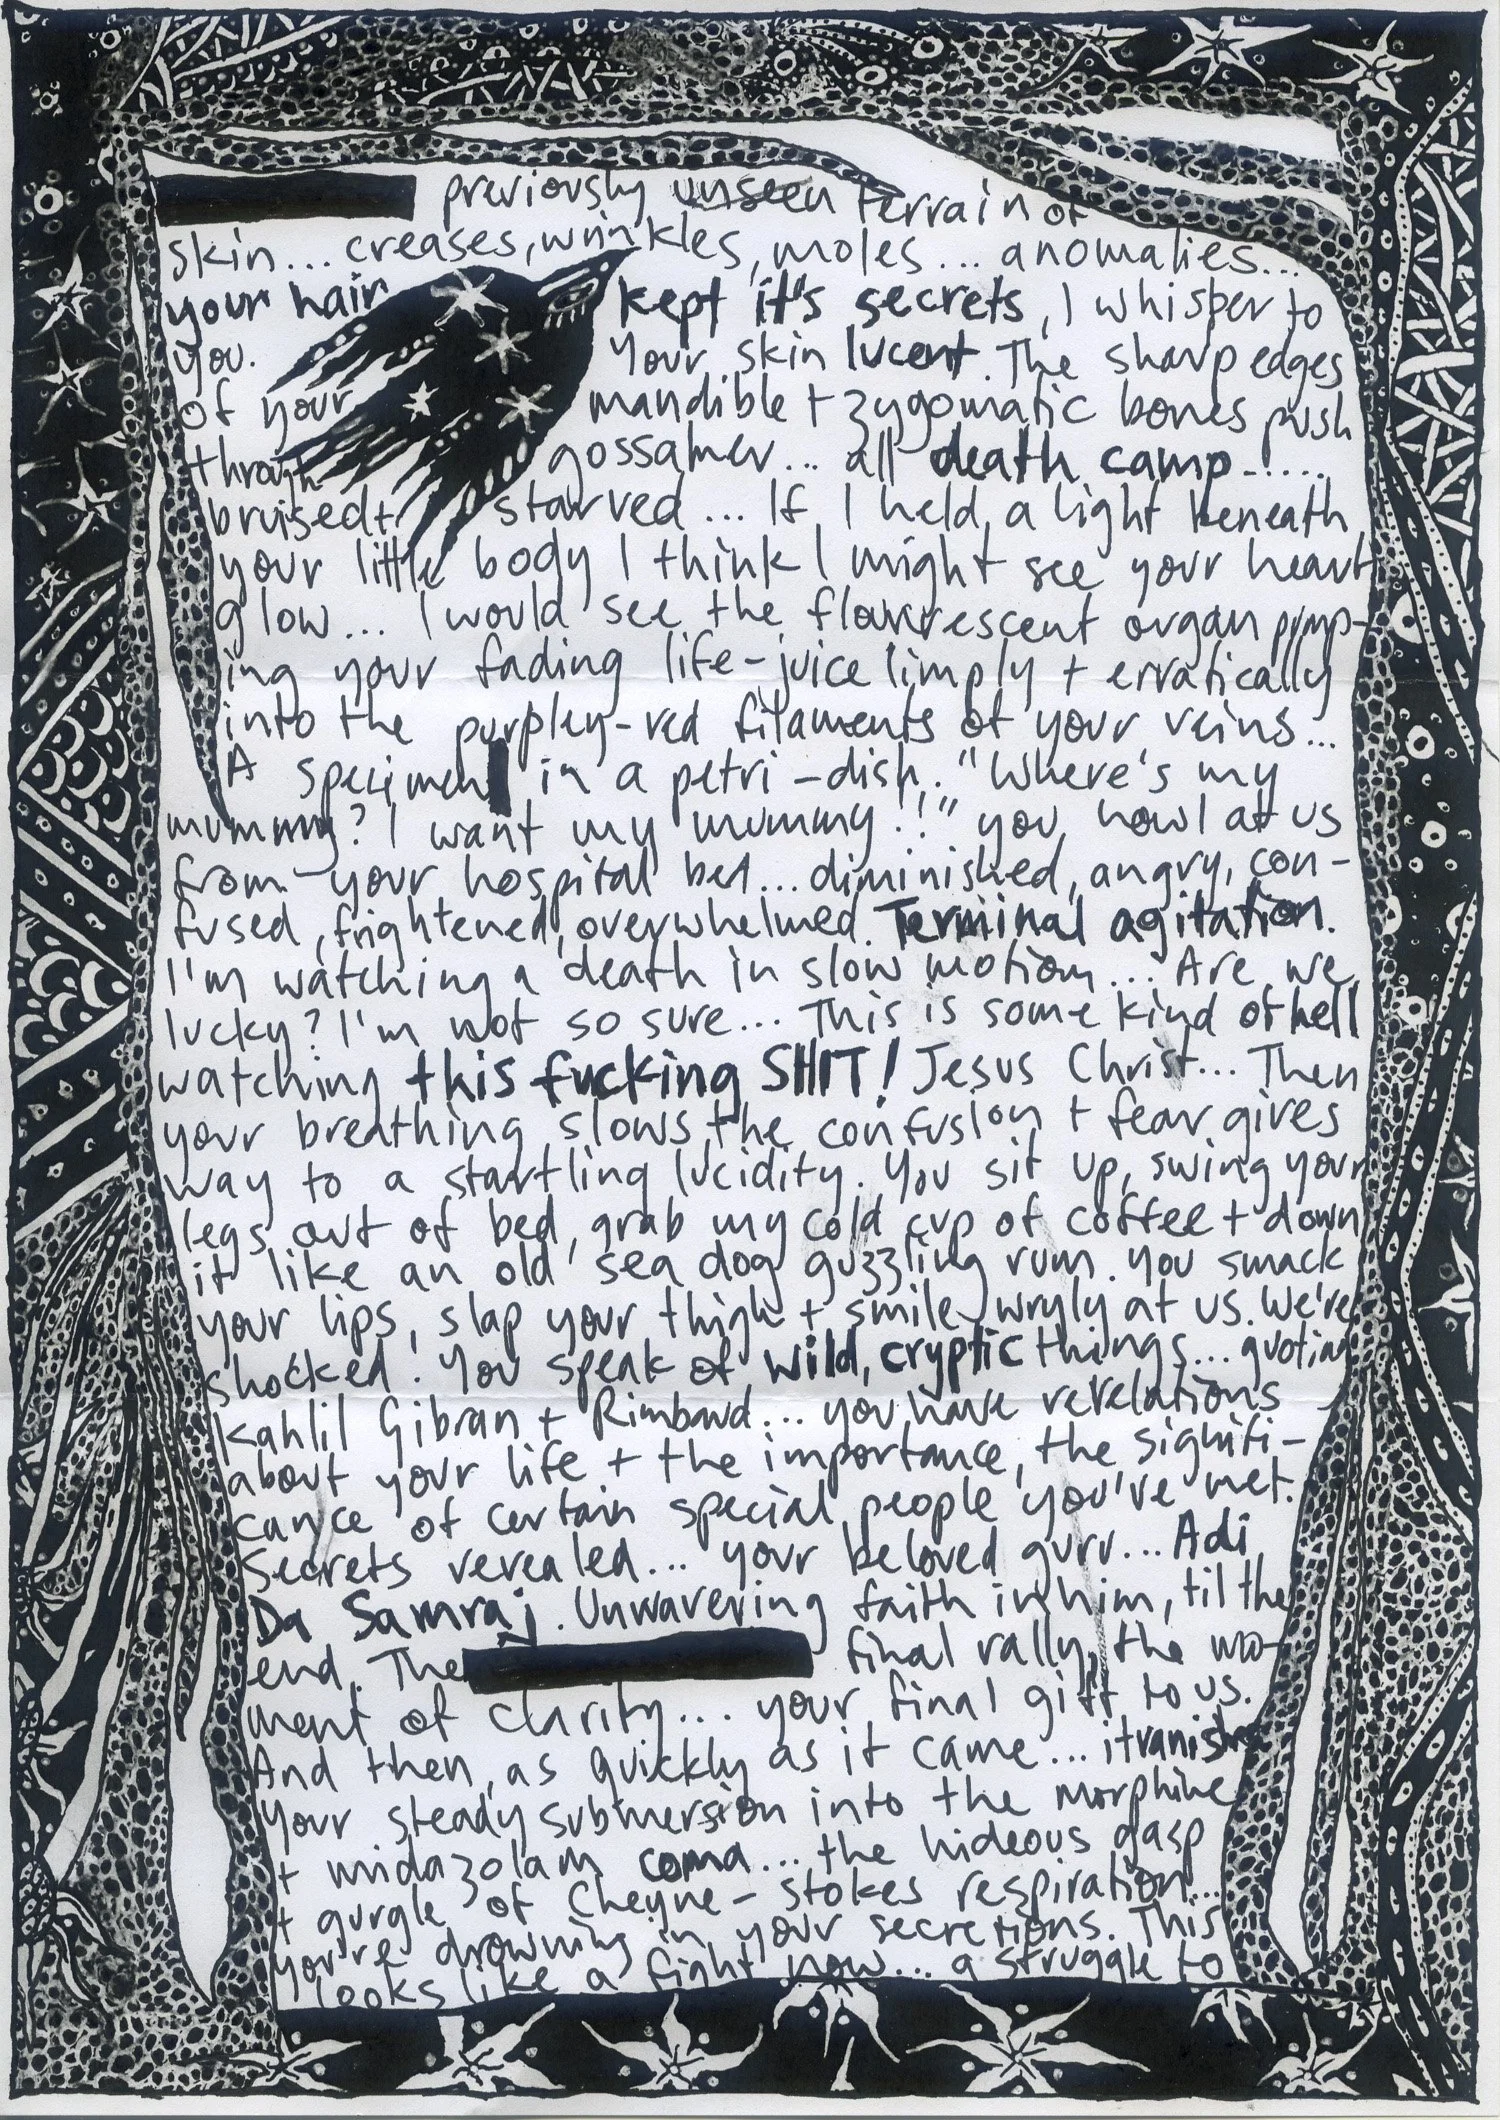 previously unseen terrain of
skin... creases, wrinkles, moles... anomalies...
your hair kept it's secrets, I whisper to
you. Your skin lucent. The sharp edges
of your mandible + zygomatic bones push
through gossamer... all death camp.....
bruised + starved... If I held a light beneath
your little body I think I might see your heart
glow... I would see the flourescent organ pump-
ing your fading life-juice limply + erratically
into the purpley-red filaments of your veins...
A specimen in a petri-dish. "Where's my
mummy? I want my mummy!!" you howl at us
from your hospital bed... diminished, angry, con-
fused, frightened, overwhelmed. Terminal agitation.
I'm watching a death in slow motion... Are we
lucky? I'm not so sure... This is some kind of hell
watching this fucking SHIT! Jesus Christ... Then
your breathing slows, the confusion + fear gives
way to a startling lucidity. You sit up, swing your
legs out of bed, grab my cold cup of coffee + down
it like an old sea dog guzzling rum. You smack
your lips, slap your thigh + smile wryly at us. We're
shocked! You speak of wild, cryptic things... quoting
Kahlil Gibran + Rimbaud... you have revelations
about your life + the importance, the signifi-
cance of certain special people you've met.
Secrets revealed... your beloved guru... Adi
Da Samraj. Unwavering faith in him, til the
end. The final rally, the mo-
ment of clarity... your final gift to us.
And then, as quickly as it came... it vanishes
Your steady submersion into the morphine
+ midazolam coma... the hideous gasp
+ gurgle of Cheyne-stokes respiration...
you're drowning in your secretions. This
looks like a fight now... a struggle to